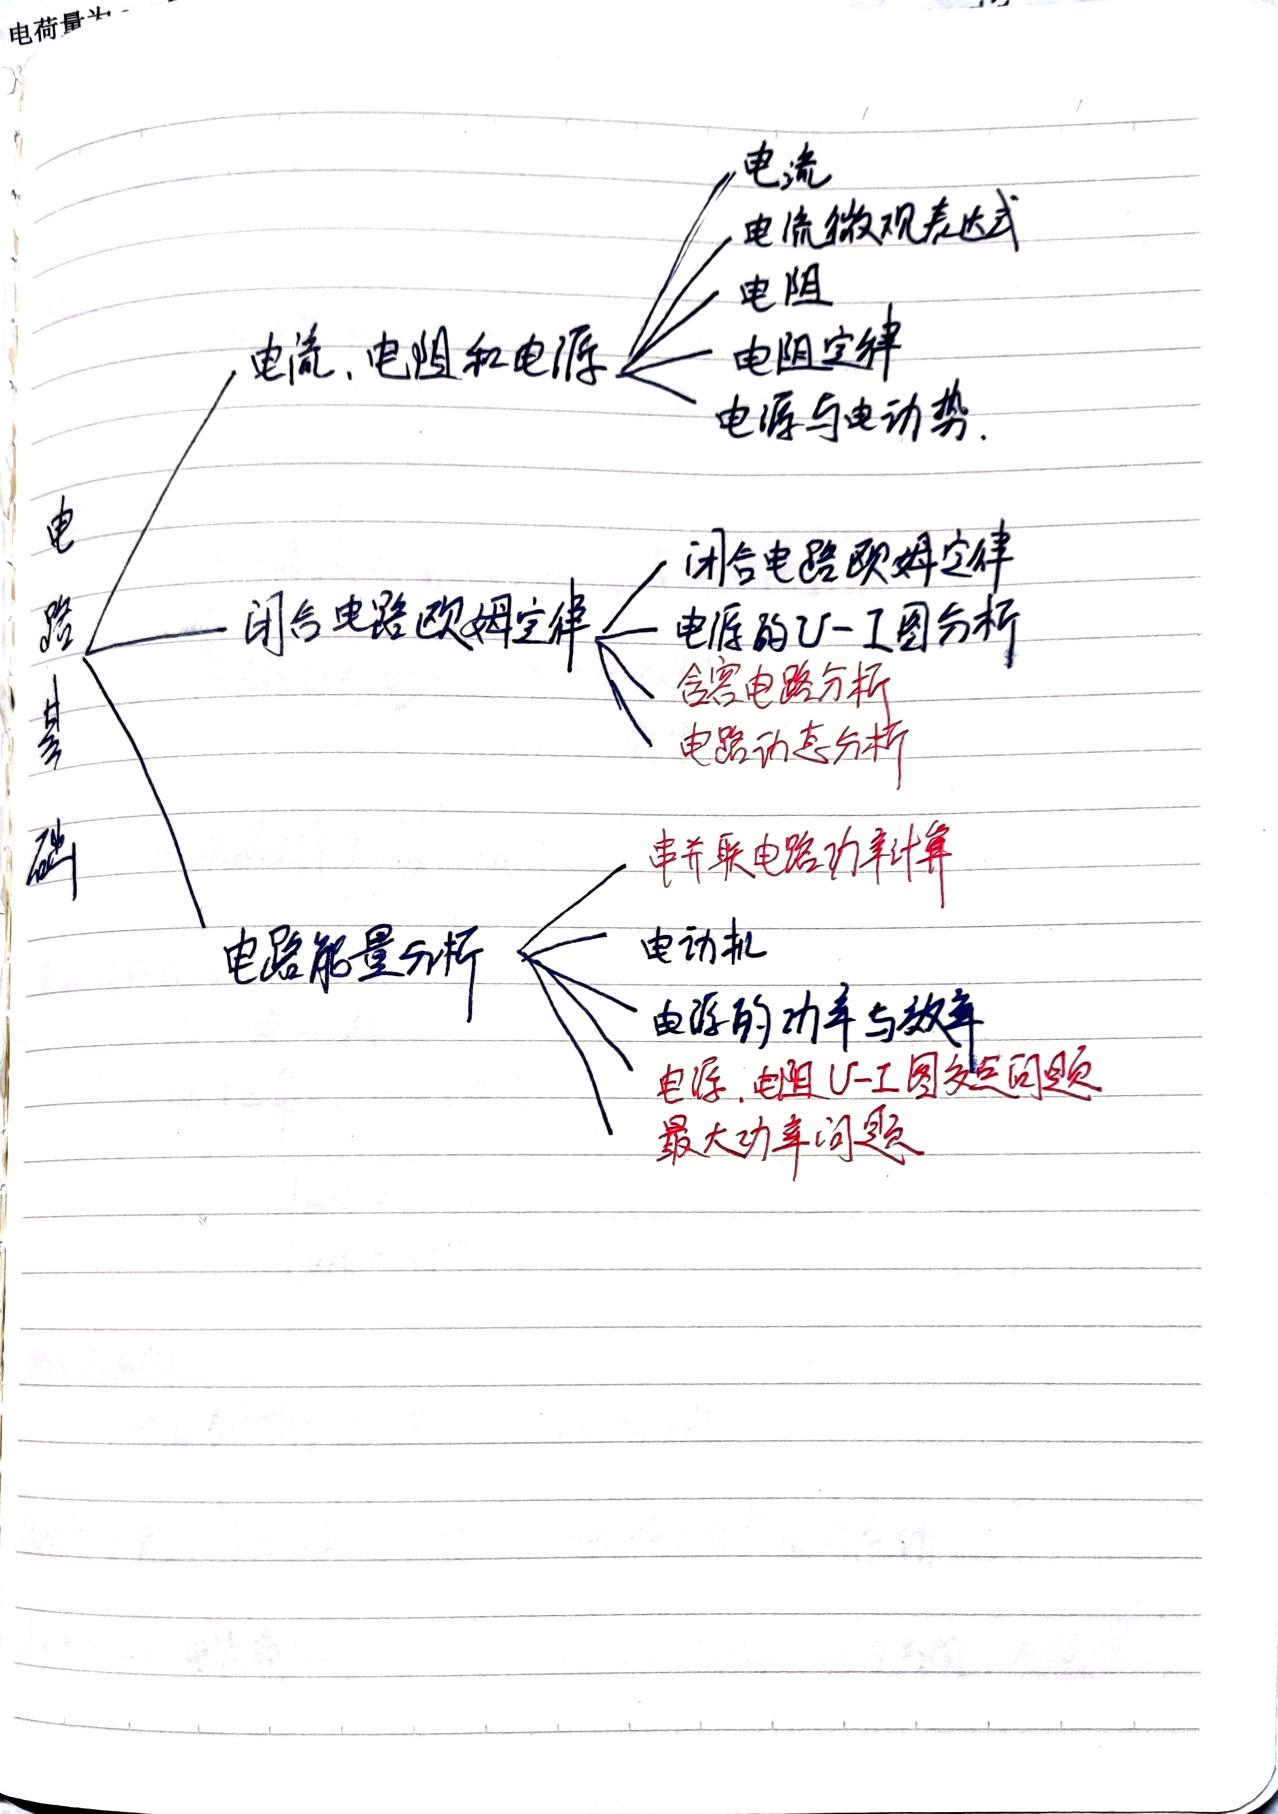 电荷量为
电流
电流微观表达式
电阻
电阻定律
电源与电动势.
电流、电阻和电源
电路基础
闭合电路欧姆定律
闭合电路欧姆定律
电源的U-I图分析
含容电路分析
电路动态分析
电路能量分析
串并联电路功率计算
电动机
电源的功率与效率
电源、电阻U-I图交点问题
最大功率问题